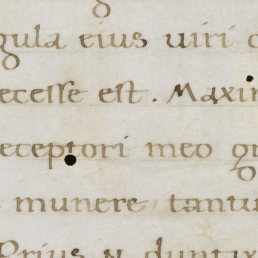 gula eius uiri
ecesse est. Maxi
eceptori meo
munere tantu
Prius